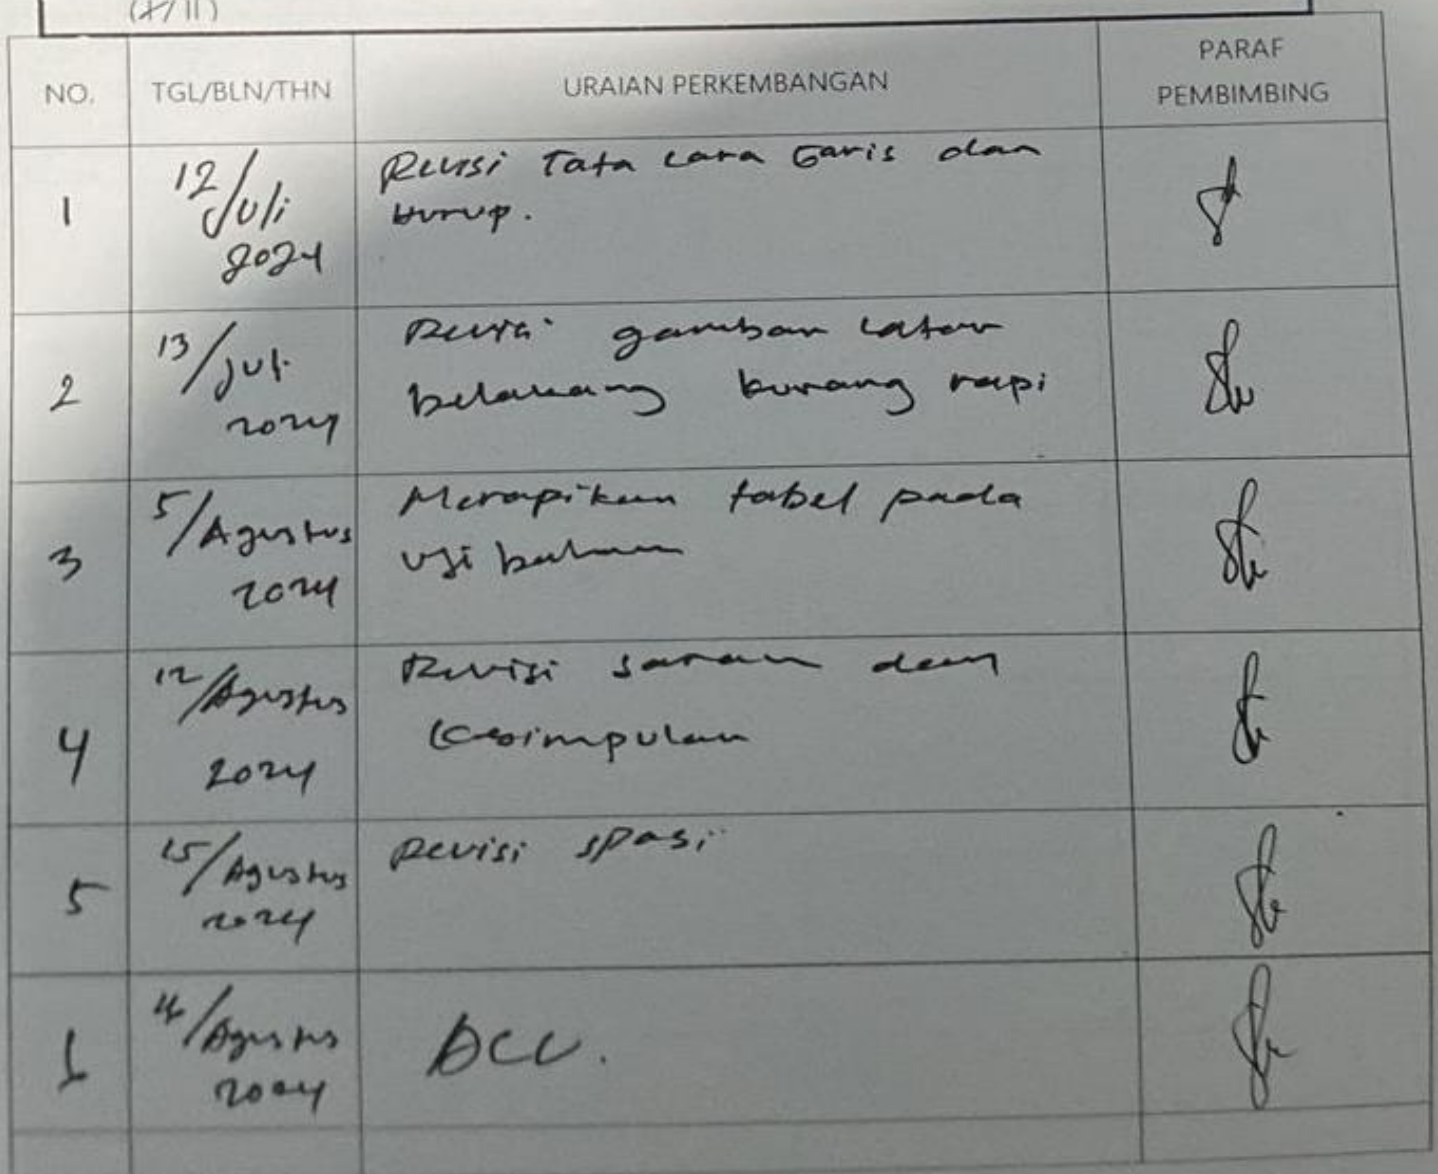 (x/II)
NO. TGL/BLN/THN URAIAN PERKEMBANGAN PARAF
PEMBIMBING
1 12/Juli Revisi Tata cara Garis dan
2024 Hurup.
2 13/Juli Revisi gambar latar
2024 belakang kurang rapi
3 5/Agustus Merapikan tabel pada
2024 Uji bahan
4 12/Agustus Revisi saran dan
2024 Kesimpulan
5 15/Agustus Revisi spasi
2024
/Agustus ACC.
2024